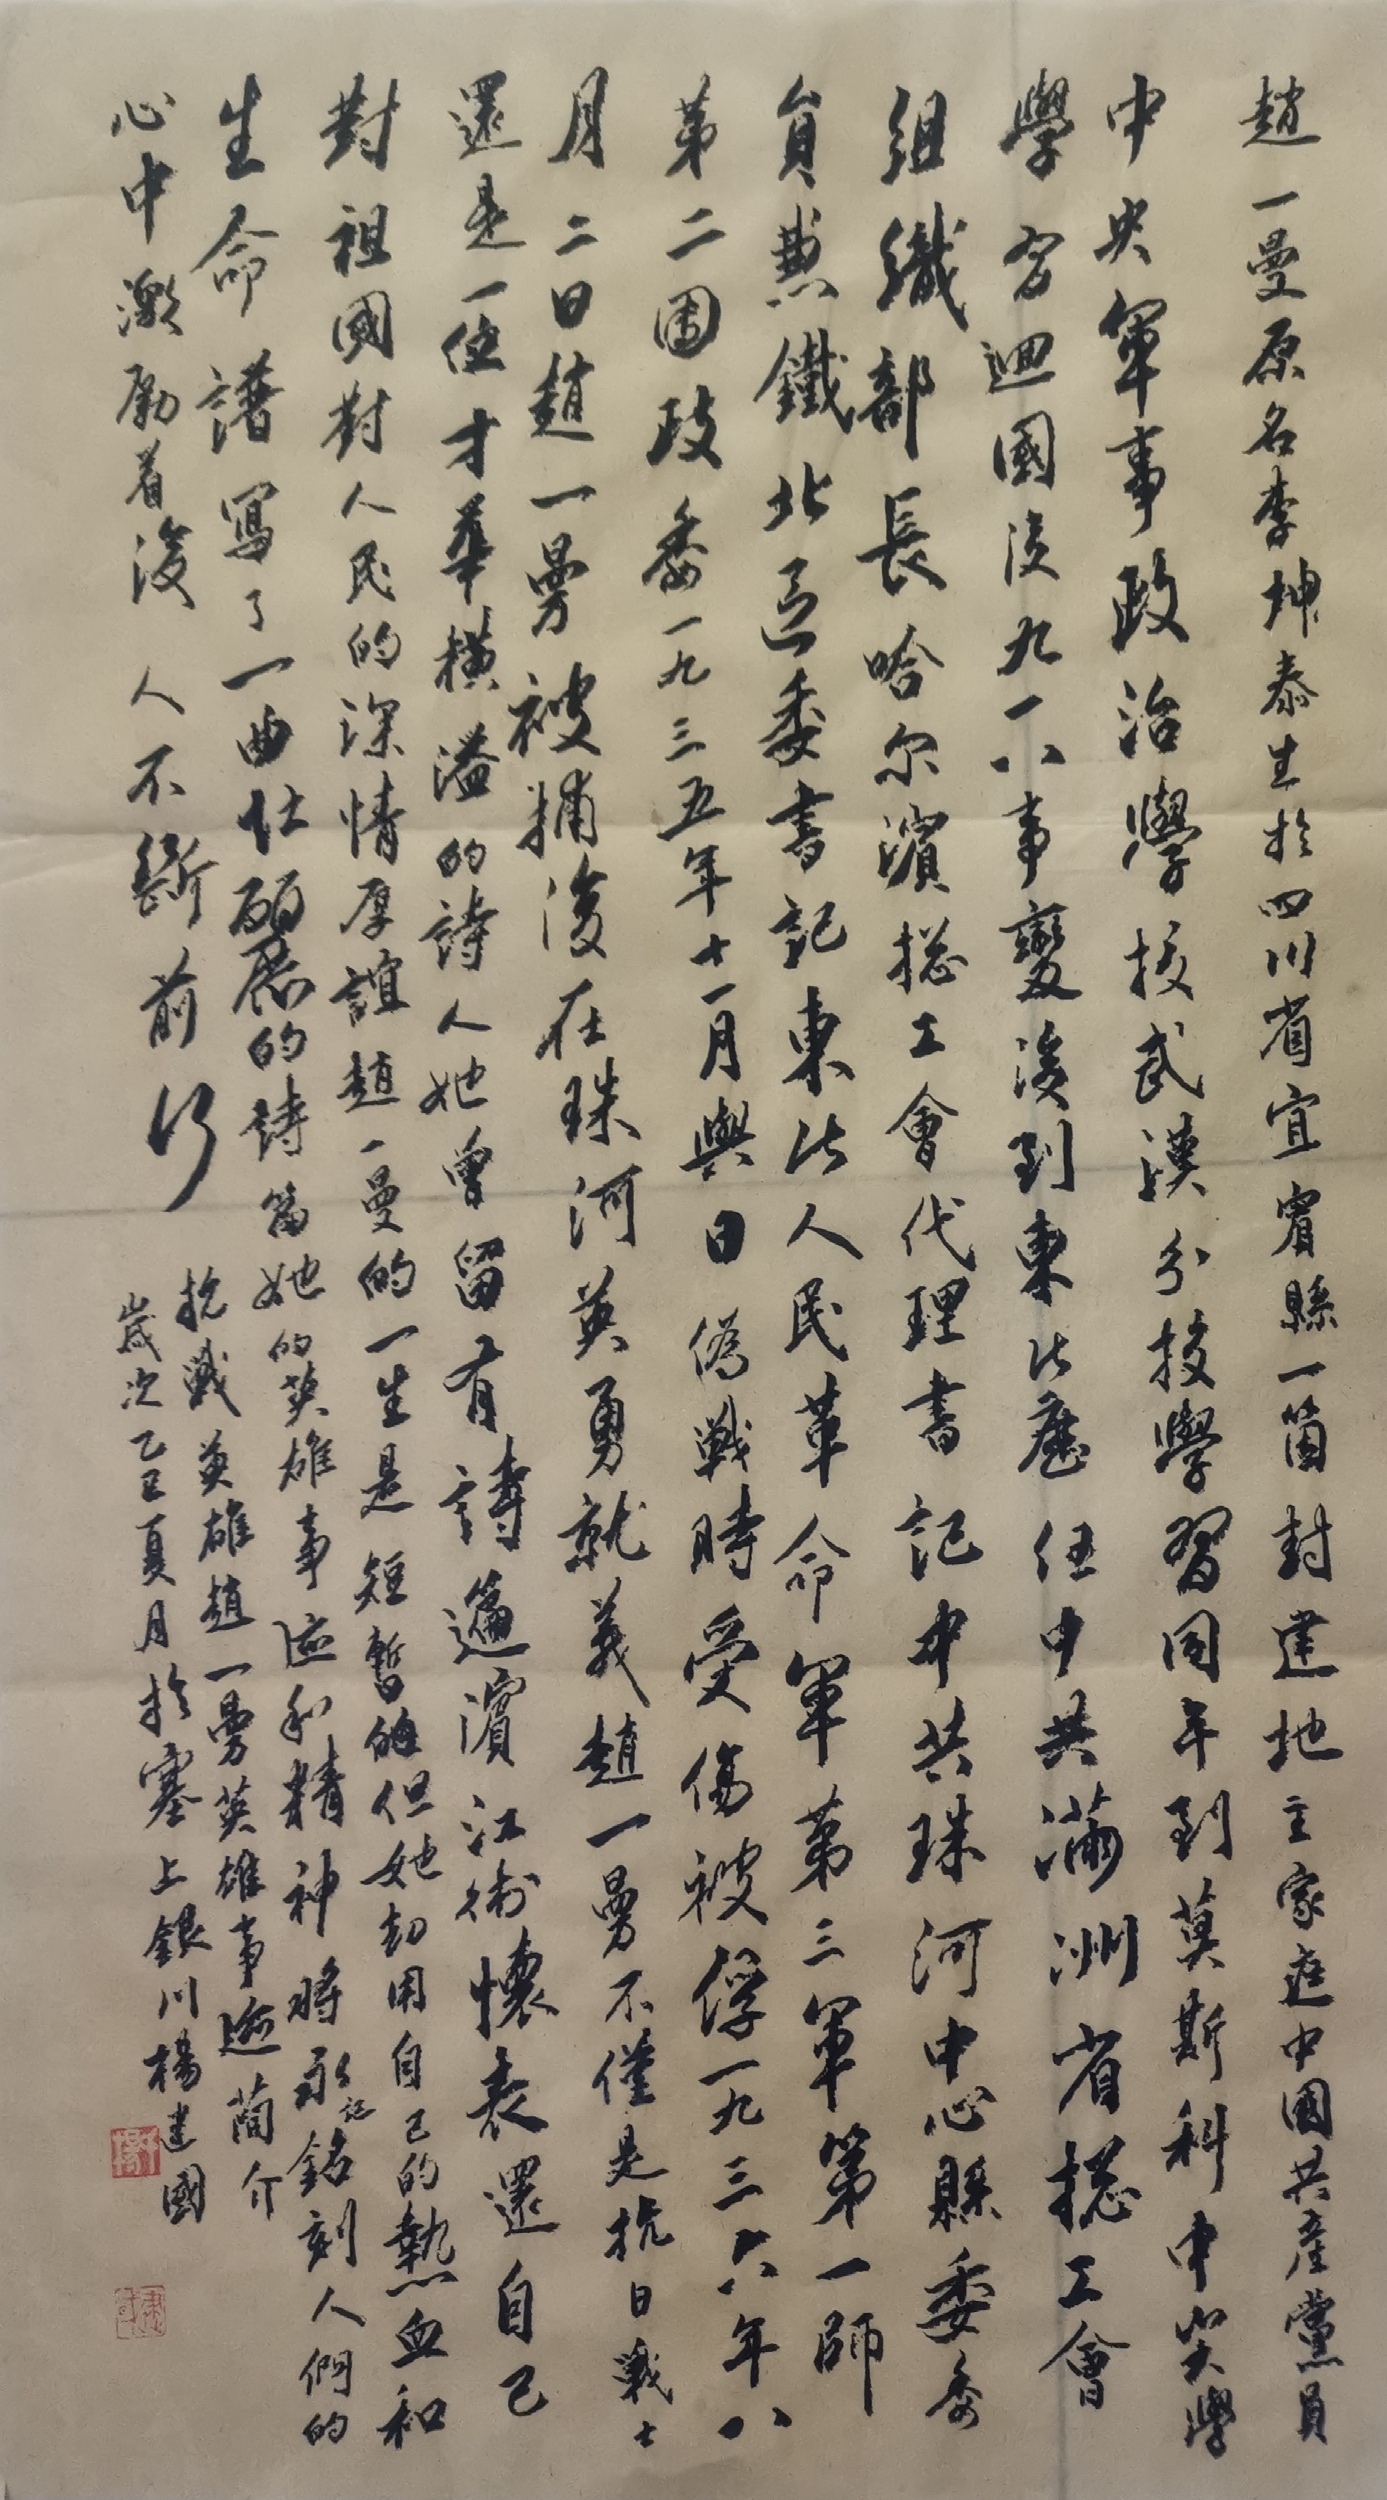 趙一曼原名李坤泰生於四川省宜賓縣一箇封建地主家庭中國共產黨員
中央軍事政治學校武漢分校學習同年到莫斯科中山大學
學習迴國後九一八事變後到東北歷任中共滿洲省總工會
組織部長哈尔濱總工會代理書記中共珠河中心縣委委
員兼鐵北區委書記東北人民革命軍第三軍第一師
第二團政委一九三五年十一月與日僞戰時受傷被俘一九三六年八
月二日趙一曼被捕後在珠河英勇就義趙一曼不僅是抗日戰士
還是一位才華橫溢的詩人她曾留有詩篇濱江術懷表還自己
對祖國對人民的深情厚誼趙一曼的一生是短暫的但她却用自己的熱血和
生命譜寫了一曲壮麗的詩篇她的英雄事迹和精神將永远銘刻人們的
心中激勵着後人不斷前行
抗戰英雄趙一曼英雄事迹簡介
歲次乙巳夏月於塞上銀川楊建國